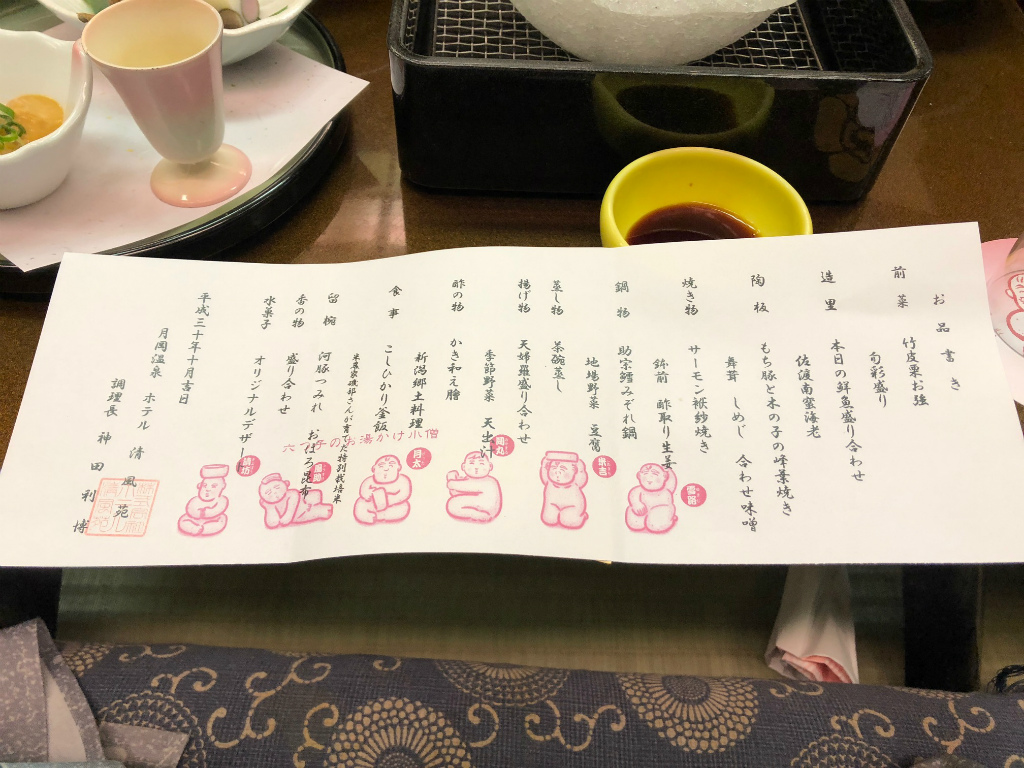 お品書き
前菜 竹皮栗お強
旬彩盛り
造里 本日の鮮魚盛り合わせ
佐渡南蛮海老
陶板 もち豚と木の子の峰葉焼き
舞茸 しめじ 合わせ味噌
焼き物 サーモン袱紗焼き
鉾前 酢取り生姜
鍋物 助宗鱈みぞれ鍋
地場野菜 豆腐
蒸し物 茶碗蒸し
揚げ物 天婦羅盛り合わせ
季節野菜 天出汁
酢の物 かき和え膾
新潟郷土料理
食事 こしひかり釜飯
米農家磯部さんが育てた特別栽培米
留椀 河豚つみれ おぼろ昆布
香の物 盛り合わせ
水菓子 オリジナルデザート
平成三十年十月吉日
月岡温泉 ホテル清風苑
調理長 神田利博
六つ子のお湯かけ小僧
月太